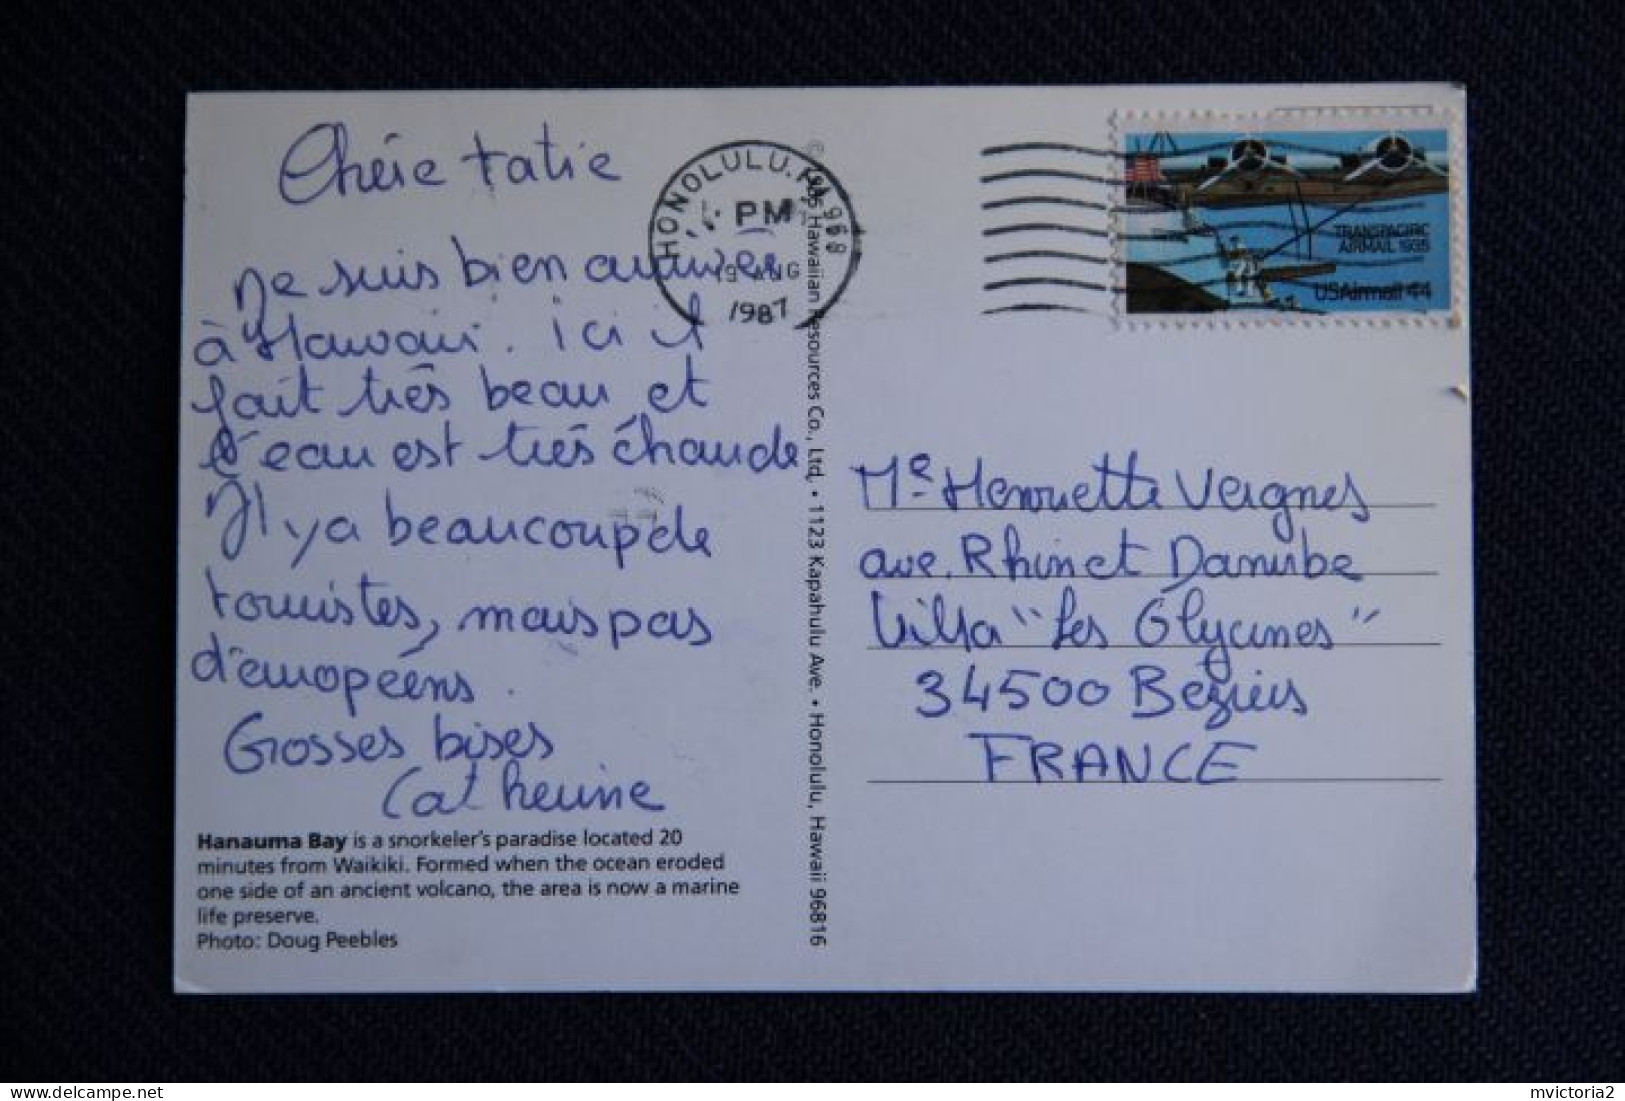 Chérie tatie
Je suis bien arrivée
à Hawaii. ici il
fait très beau et
l'eau est très chaude
Il y a beaucoup de
touristes, mais pas
d'européens.
Grosses bises
Catherine
Hanauma Bay is a snorkeler's paradise located 20
minutes from Waikiki. Formed when the ocean eroded
one side of an ancient volcano, the area is now a marine
life preserve.
Photo: Doug Peebles
HONOLULU, HI 968
PM
19 AUG
1987
Hawaiian Resources Co., Ltd. • 1123 Kapahulu Ave. • Honolulu, Hawaii 96816
TRANSPACIFIC
AIRMAIL 1935
USAirmail 44
Me Henriette Vergnes
ave. Rhin et Danube
Villa "Les Glycines"
34500 Beziers
FRANCE
mvictoria2